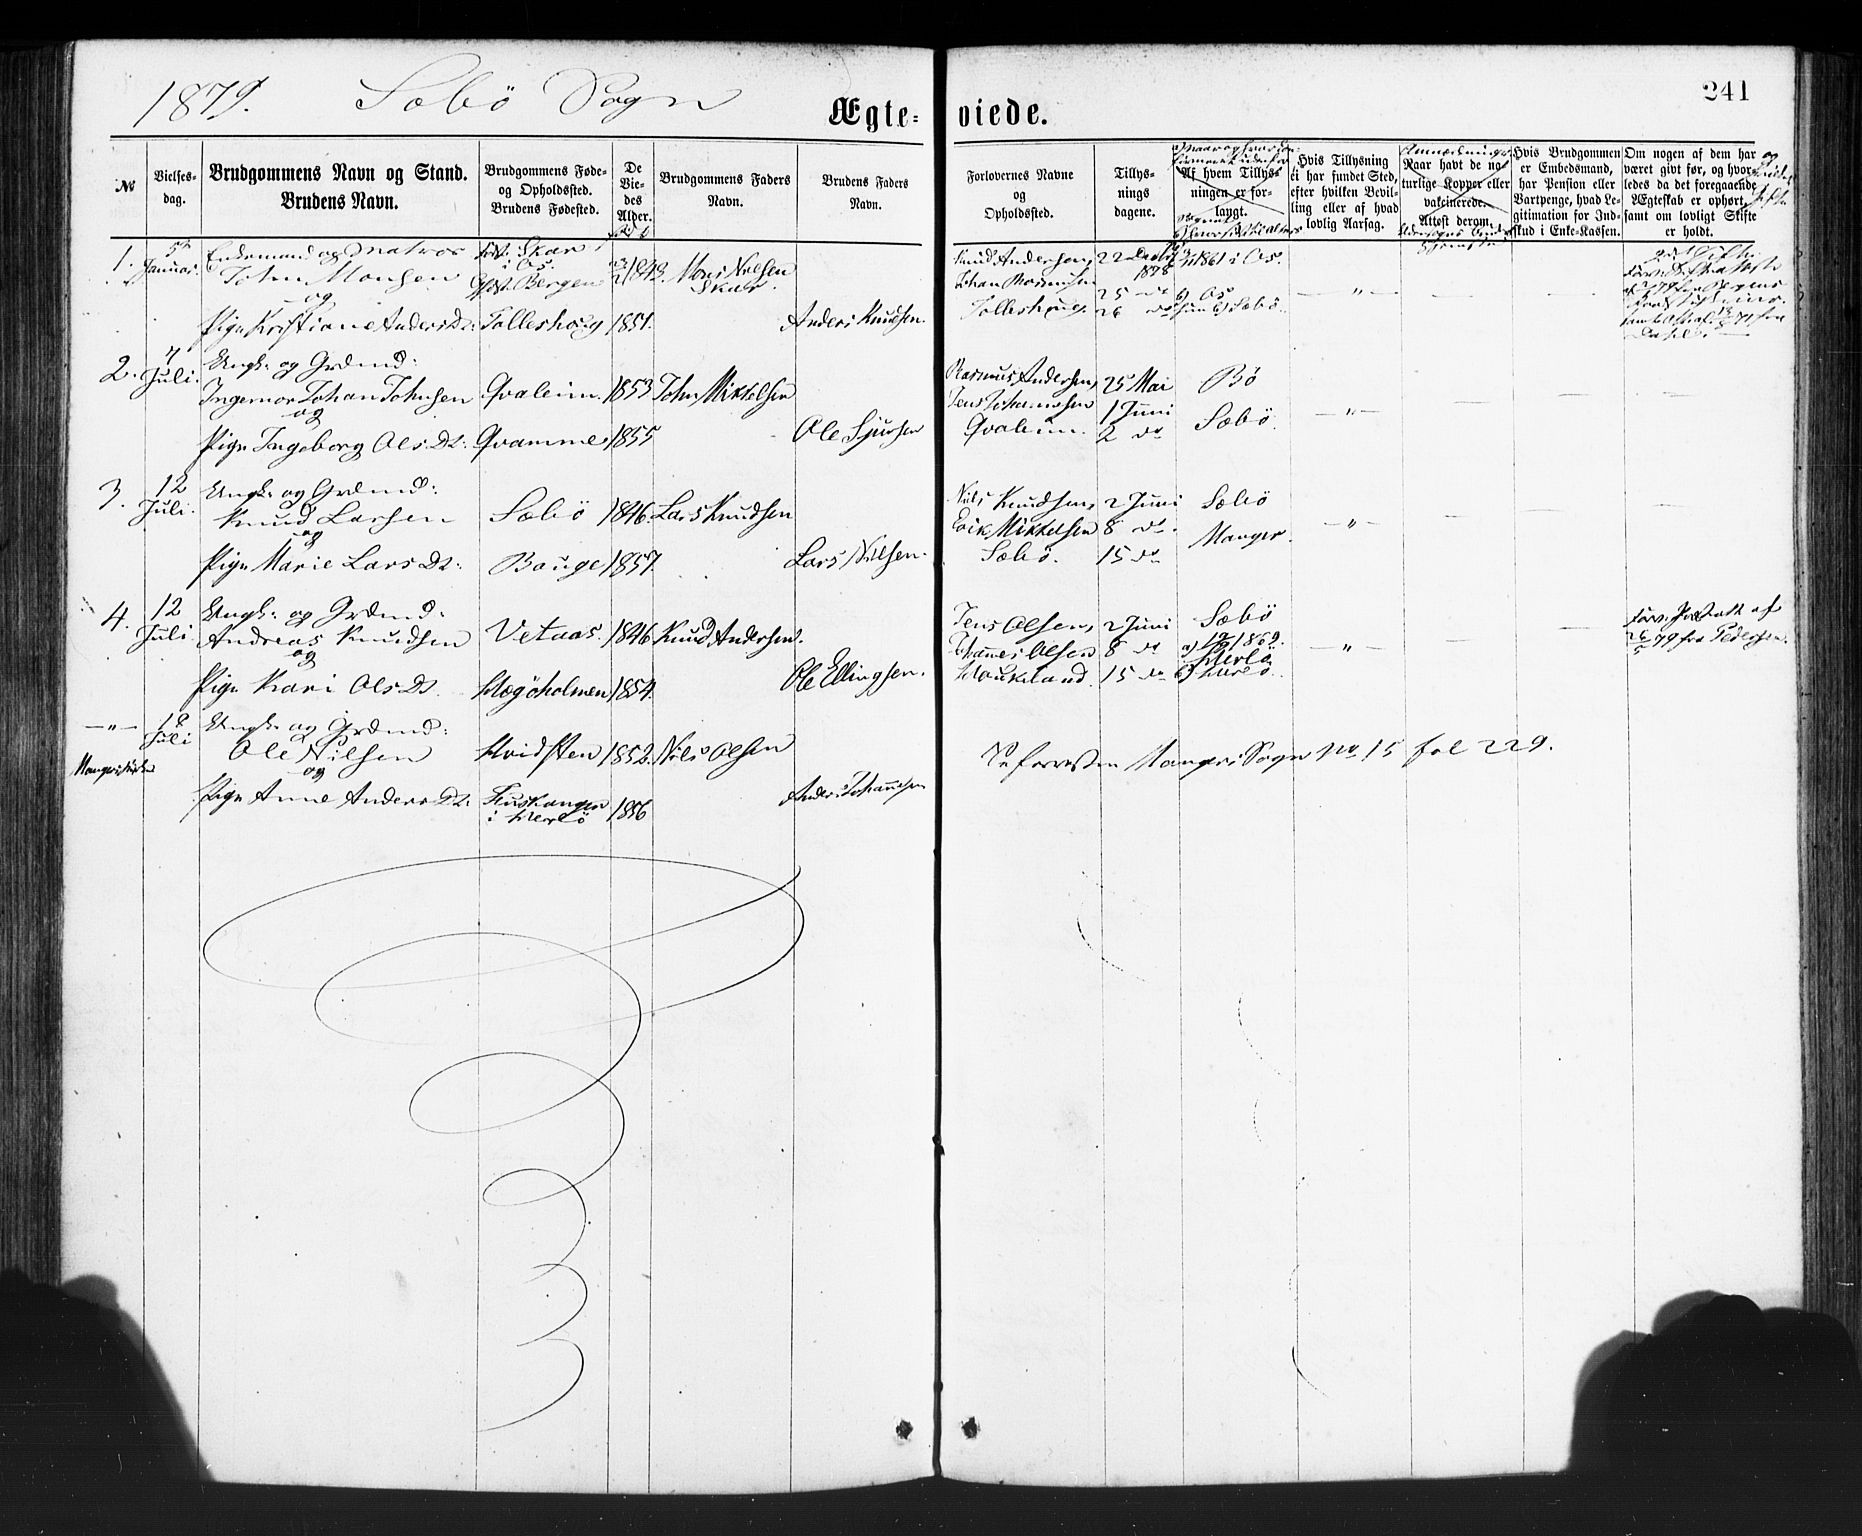 1879. Sæbö Sogn
Ægte=
viede.
241
№
Vielses-
dag.
Brudgommens Navn og Stand.
Brudens Navn.
Brudgommens Føde-
og Opholdssted.
Brudens Fødested.
De
Vie-
des
Alder.
Brudgommens Faders
Navn.
Brudens Faders
Navn.
Forlovernes Navne
og
Opholdssted.
Tillys-
nings
dagene.
Af hvem Tillys-
ningen er for-
langt.
Hvis Tillysning
ei har fundet Sted,
efter hvilken Bevil-
ling eller af hvad
lovlig Aarsag.
Naar havt de na-
turlige Kopper eller
vakcinerede.
Attest derom.
Hvis Brudgommen
er Embedsmand,
har Pension eller
Vartpenge, hvad Le-
gitimation for Ind-
skud i Enke-Kassen.
Om nogen af dem har
været givt før, og hvor-
ledes da det foregaaende
Ægteskab er ophørt,
samt om lovligt Skifte
er holdt.
1.
5te
Januar.
Enkemand og Matros
John Monsen
og
Pige Kristiane Anders Dt:
Skar
i Os.
Bergen
Tolleshoug
1843.
1851.
Mons Nilsen
Skar.
Anders Knudsen.
Knud Andersen,
Johan Rasmusen
Tolleshoug.
22 Decbr
1878
25 do
26 do
1861 i Os.
Os
Sæbö.
— " —
2.
7
Juli.
Ungk: og Grdmd:
Ingemar Johan Johnsen
og
Pige Ingeborg Ols Dt:
Qvaleim.
Qvamme
1853
1855
John Mikkelsen
Ole Sjursen
Rasmus Andersen,
Jens Johannesen
Qvaleim.
25 Mai
1 Juni
2 do
Bö
Sæbö.
— " —
3.
12
Juli.
Ungk: og Grdmd:
Knud Larsen
og
Pige Marie Lars Dt:
Sæbö
Bauge
1846.
1857.
Lars Knudsen
Lars Nilsen.
Nils Knudsen,
Erik Mikkelsen
Sæbö.
2 Juni
8 do
15 do
Sæbö
Manger.
— " —
4.
12
Juli
Ungk: og Grdmd:
Andreas Knudsen
og
Pige Kari Ols Dt.
Vetaas.
Hægöholmen
1846
1854.
Knud Andersen.
Ole Ellingsen.
Jens Olsen,
Johannes Olsen
Haukeland.
2 Juni
8 do
15 do
Sæbö
1869.
Herlö
— " —
— " —
Juli
Ungk: og Grdmd:
Ole Nilsen
og
Pige Anne Anders Dt:
Hvidsten
i Herlö
1852.
1856
Nils Olsen
Anders Johannesen
Manger Sogn No 15 fol 229.